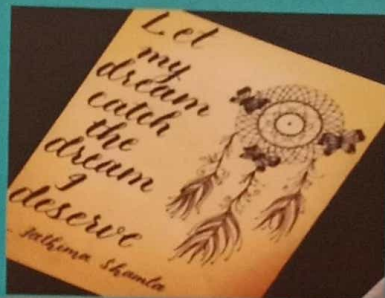 Let
my
dream
catch
the
dream
I
deserve
- Fathima Shamla